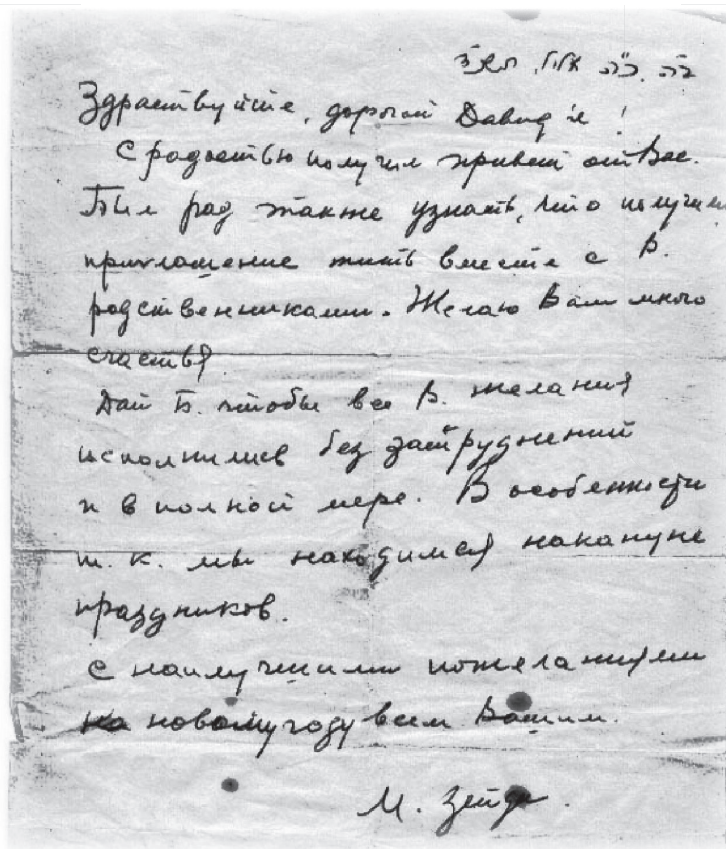 ב"ה, כ"ה אלול,
Здраствуйте, дорогой Давид'ле!
С радостью получил привет от Вас.
Был рад также узнать, что получили
приглашение жить вместе с В.
родственниками. Желаю Вам много
счастья
Дай Б. чтобы все В. желания
исполнились без затруднений
и в полной мере. В особенности
т. к. мы находимся накануне
праздников.
С наилучшими пожеланиями
новому году всем Вашим.
М.